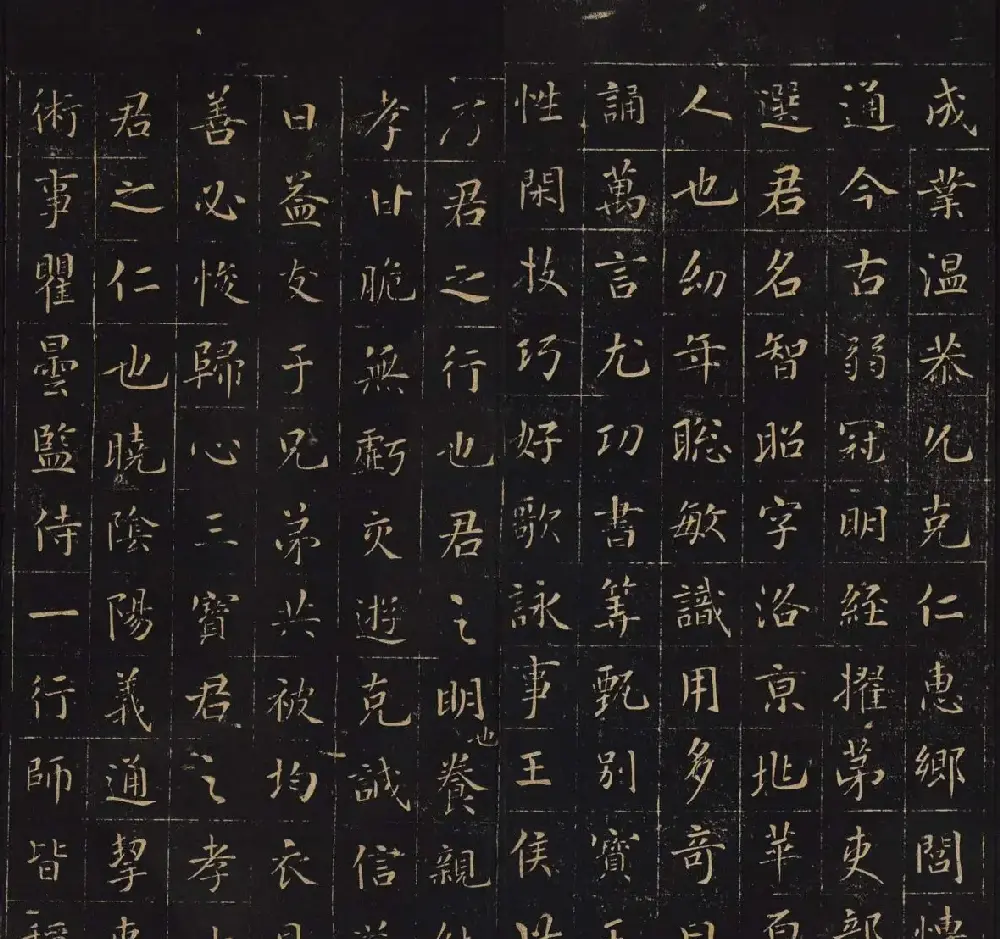 成業温恭允克仁惠鄉閭
通今古弱冠明經擢苐吏部
選君名智昭字洛京兆華
人也幼年聡敏識用多竒
誦萬言尤功書筭甄別寶
性閑技巧好歌詠事王侯
乃君之行也君之明也養親
孝甘脆無虧灾逰克誠信
日益友于兄弟共被均衣
善必悛歸心三寶君之孝
君之仁也曉陰陽義通挈
術事瞿曇監侍一行師皆